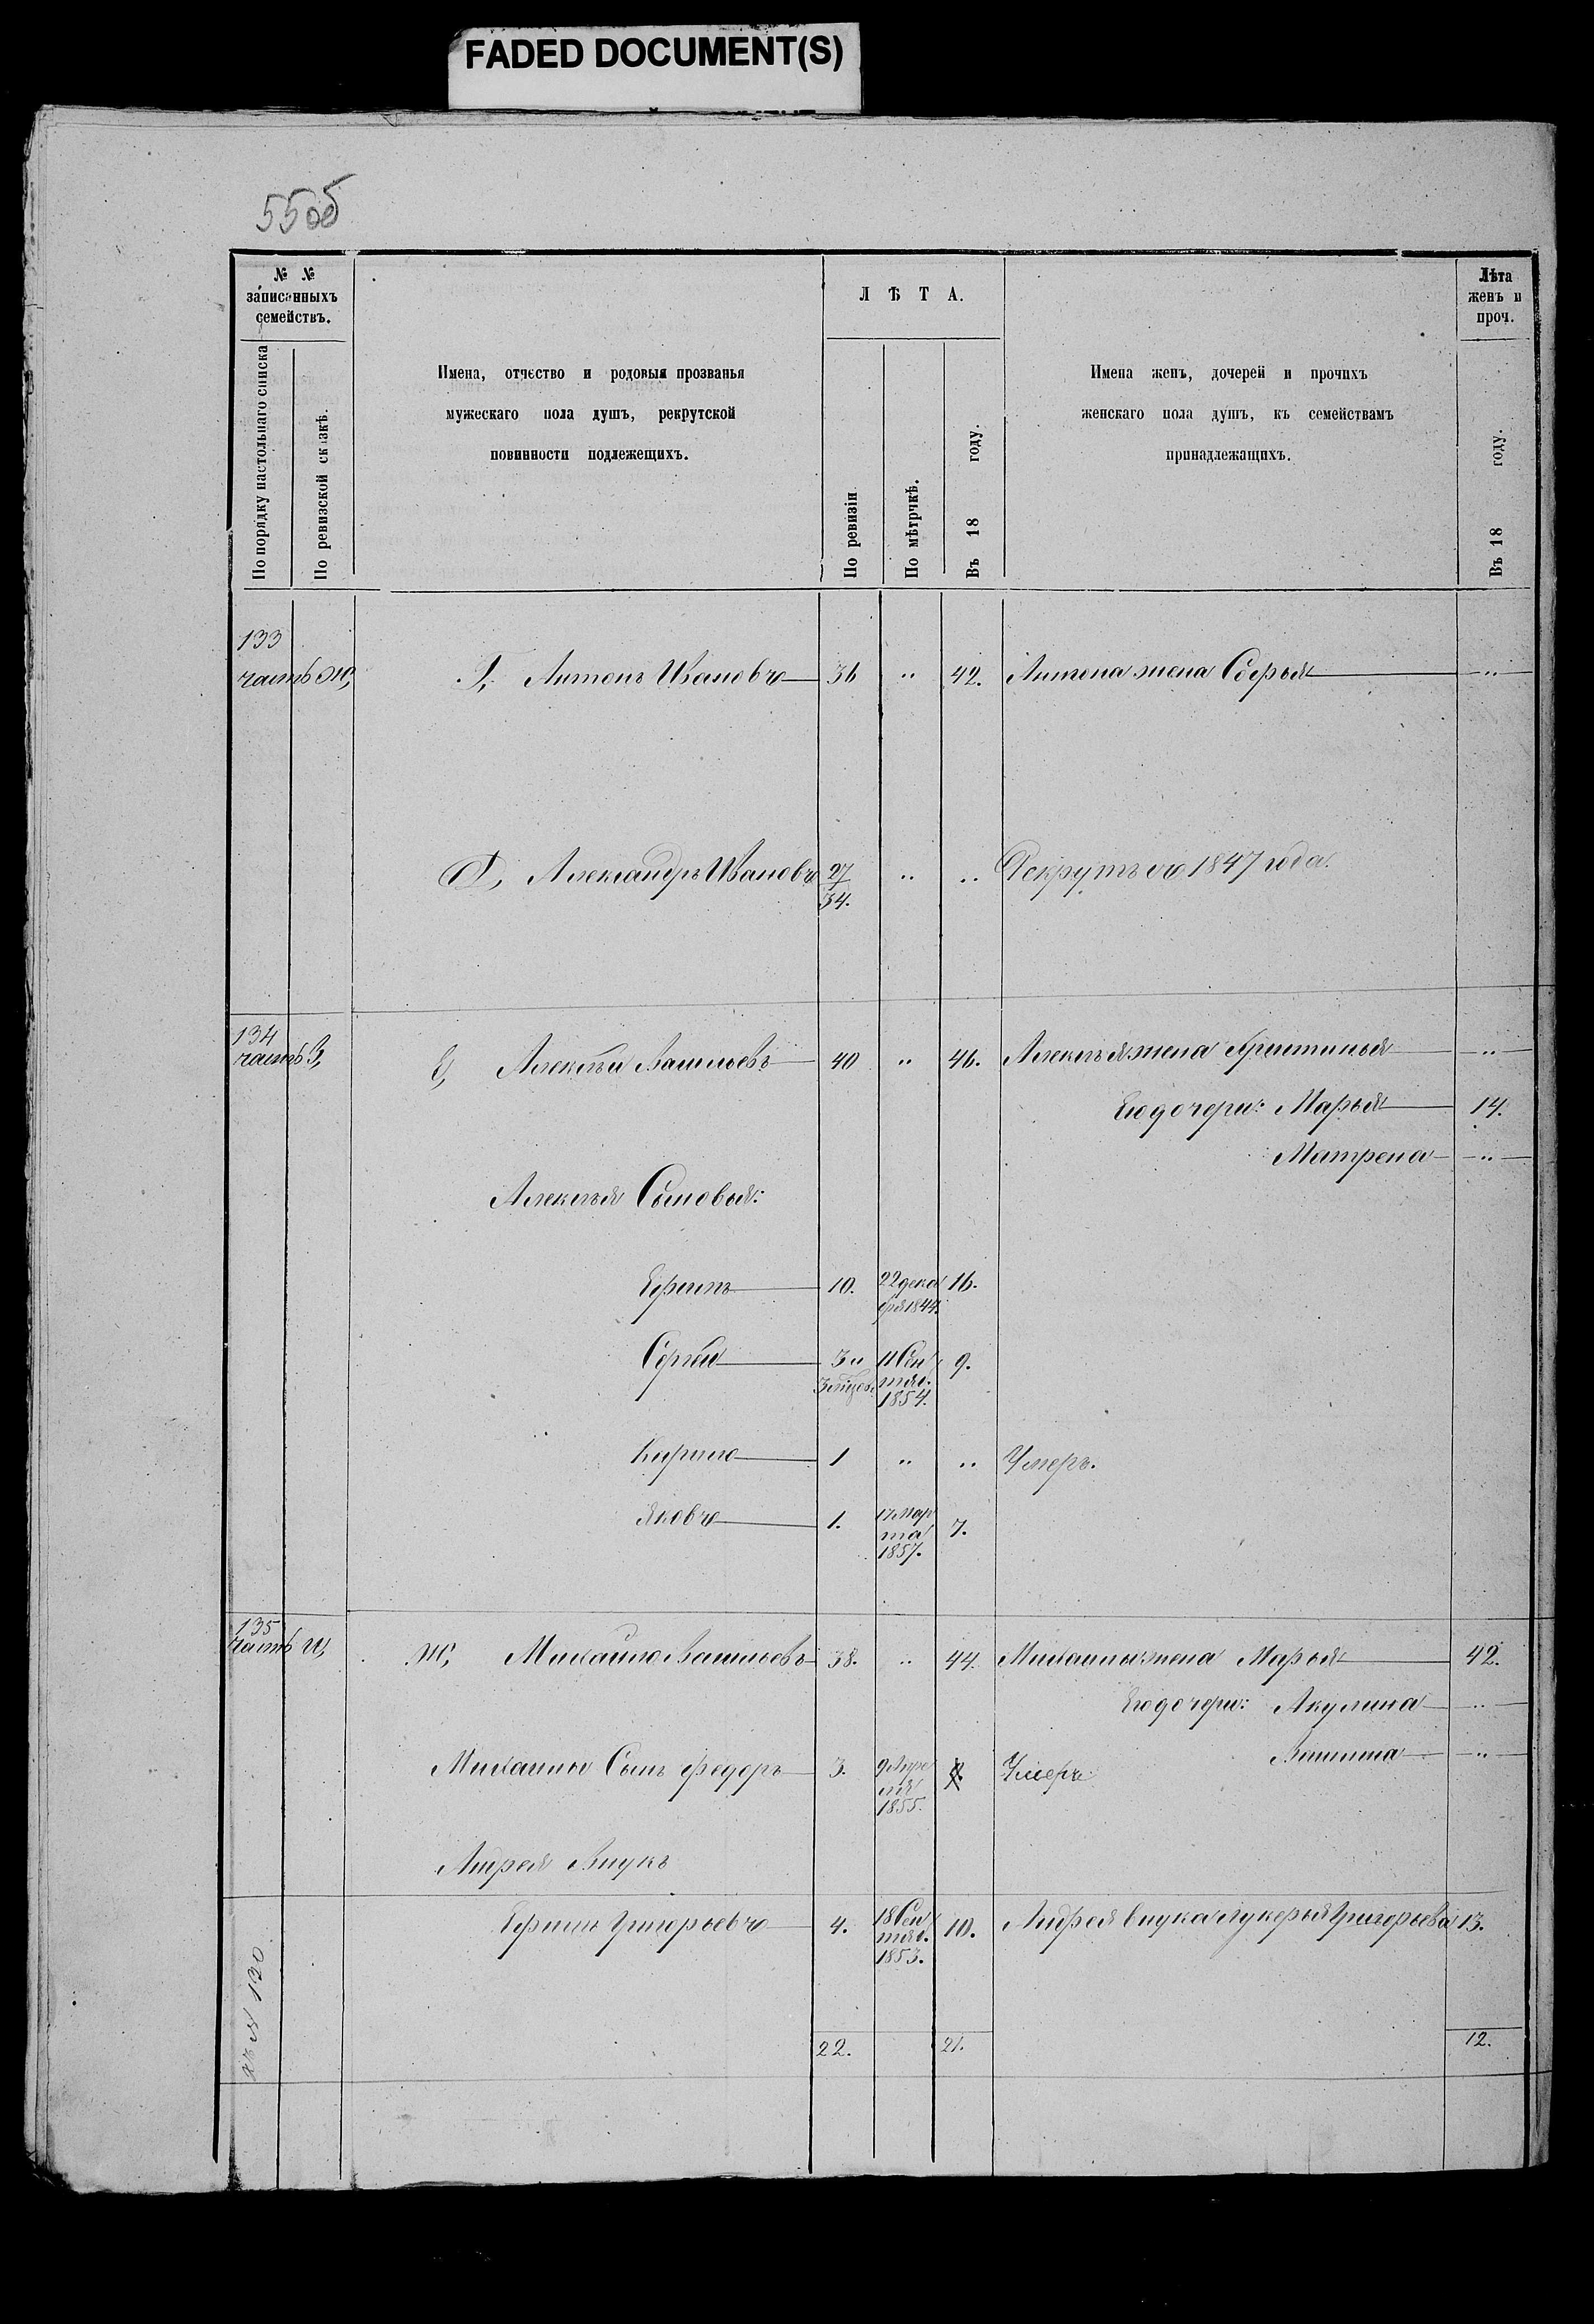 FADED DOCUMENT(S)
55об
№ №
записанныхъ
семействъ.
По порядку настольнаго списка
По ревизской сказкѣ.
Имена, отчество и родовыя прозванья
мужескаго пола душъ, рекрутской
повинности подлежещихъ.
ЛѢТА.
По ревизіи
По мѣтрчкѣ.
Въ 18 году.
Имена женъ, дочерей и прочихъ
женскаго пола душъ, къ семействамъ
принадлежащихъ.
Лѣта
женъ и
проч.
Въ 18 году.
133
часть Ж, Г, Антонъ Ивановъ 36 " 42. Антона жена Софья "
Д, Александръ Ивановъ 27 " " Рекрутъ съ 1847 года.
34.
134
часть З, Е, Алексѣй Васильевъ 40 " 46. Алексѣя жена Христинья "
Его дочери: Марья 14.
Матрена "
Алексѣя Сыновья:
Ефимъ 10. 22 дека 16.
бря 1844.
Сергѣй 3 и 11 Сен 9.
3 мѣсев. тяб.
1854.
Кирило 1 " " Умеръ.
Яковъ 1. 17 Мар 7.
та
1857.
135
часть И, Ж, Михайло Васильевъ 38. " 44. Михаилы жена Марья 42.
Его дочери: Акулина "
Михаилы Сынъ Федоръ 3. 9 Апре Умеръ "
ля
1855.
Андрея Внукъ
Ефимъ Григорьевъ 4. 18 Сен 10. Андрея внука Лукерья Григорьева 13.
тяб.
1853.
къ № 120
22. 21. 12.